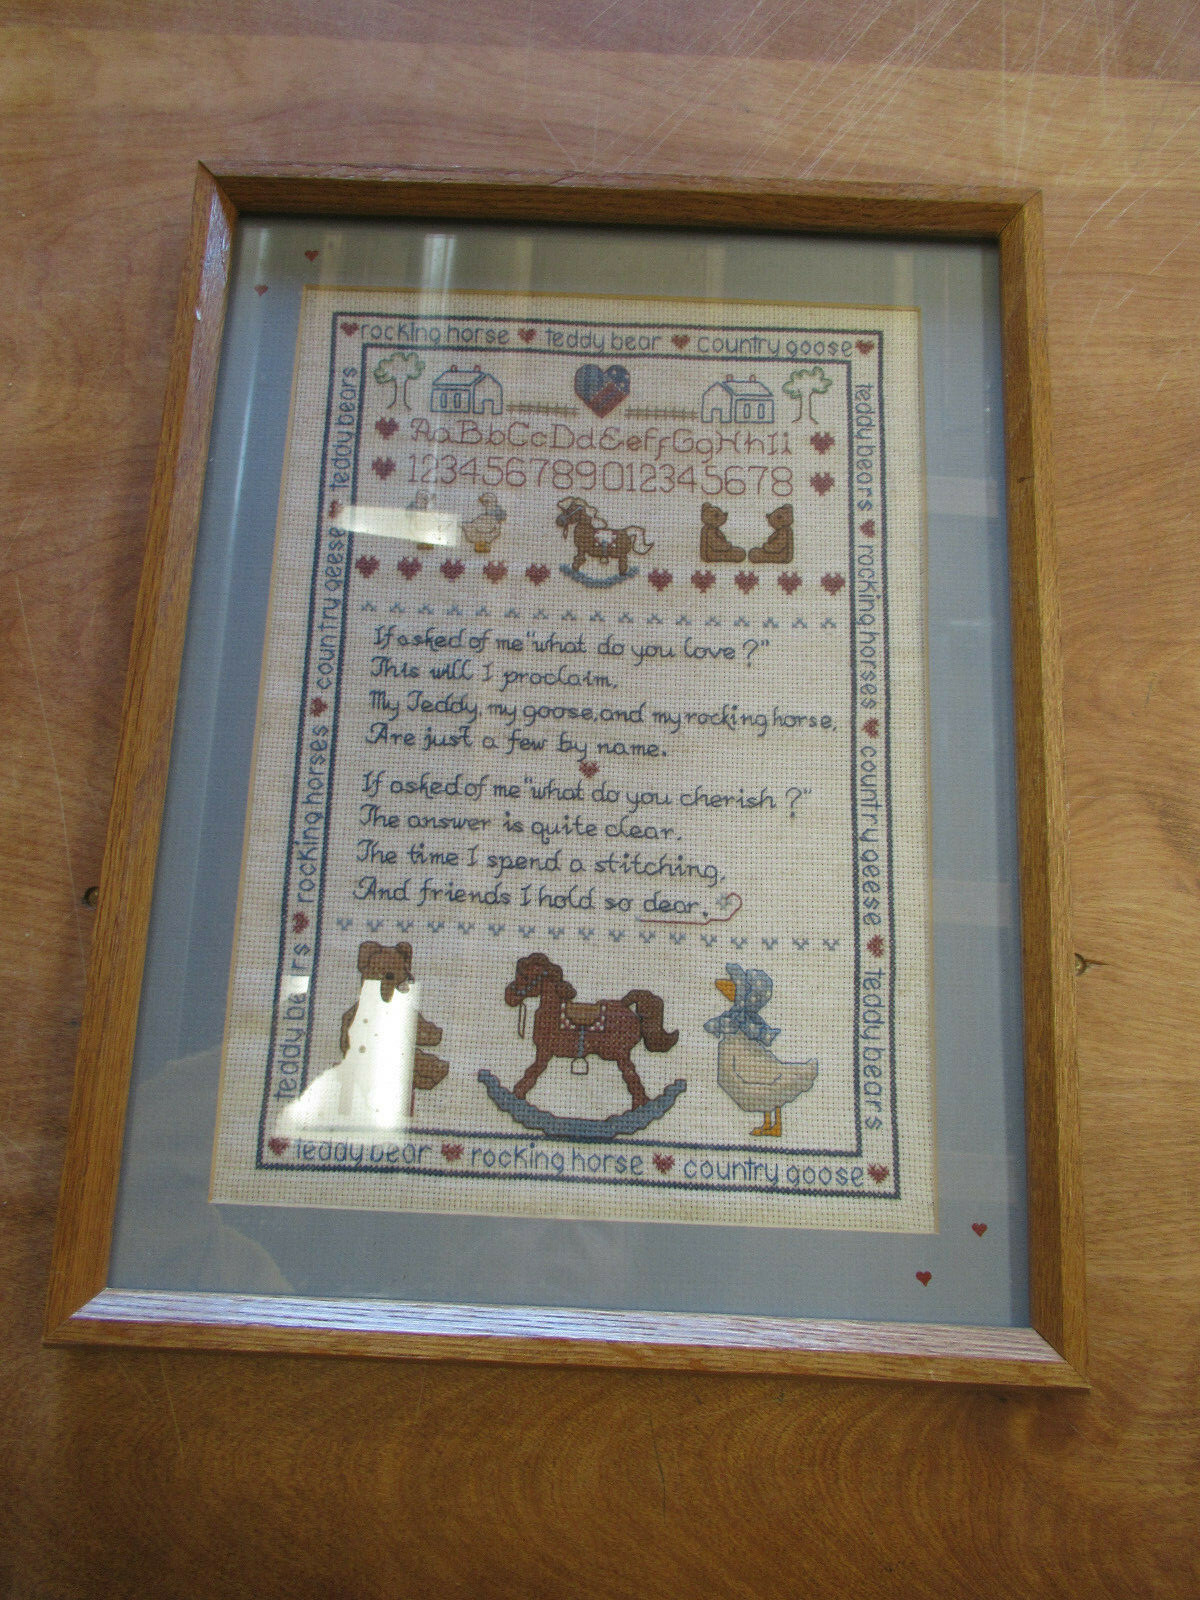 rocking horse teddy bear country goose
AaBbCcDdEeFfGgHhIi
123456789012345678
If asked of me "what do you love?"
This will I proclaim,
My Teddy, my goose, and my rocking horse,
Are just a few by name.
If asked of me "what do you cherish?"
The answer is quite clear.
The time I spend a stitching,
And friends I hold so dear.
teddy bear rocking horse country goose
teddy bears rocking horses country geese teddy bears
teddy bears rocking horses country geese teddy bears